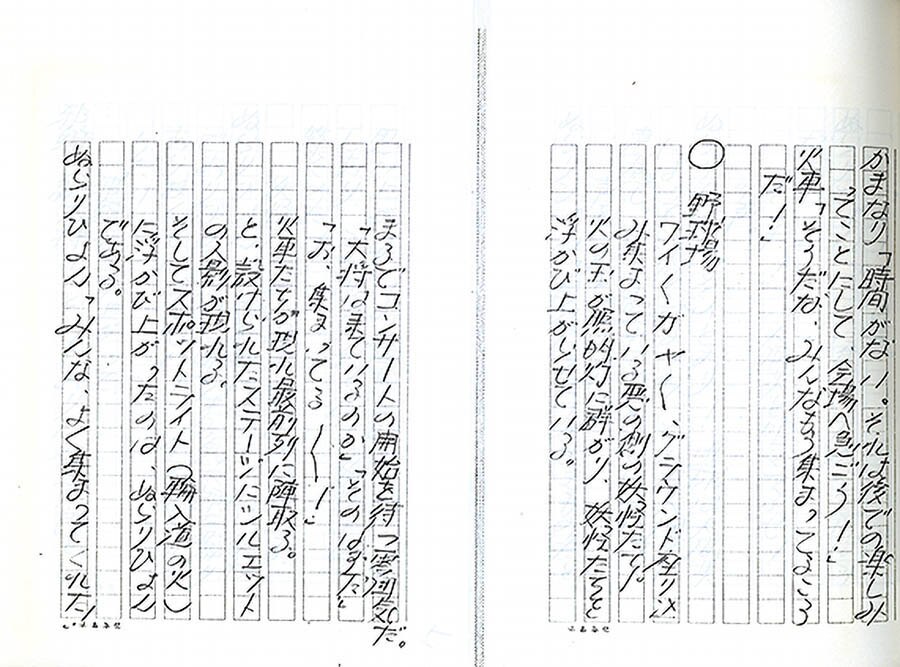 かまなり「時間がない。それは後での楽しみ
ってことにして 会場へ急ごう!」
火車「そうだな、みんなもう集まってるころ
だ!」
○ 野球場
ワイ〱ガヤ〱、グラウンド一座り込
み集まっている悪の想の妖怪たち。
火の玉が照明灯に群がり、妖怪たちを
浮かび上がらせている。
まるでコンサートの開始を待つ雰囲気だ。
「大将は来ているのか」「そのはずだ」
「お、集まってる〱!」
火車たちが現れ最前列に陣取る。
と、設けられたステージにシルエット
の人影が現れる。
そしてスポットライト(輪入道の火)
に浮かび上がったのは、ぬらりひょん
である。
ぬらりひょん「みんな、よく集まってくれた!